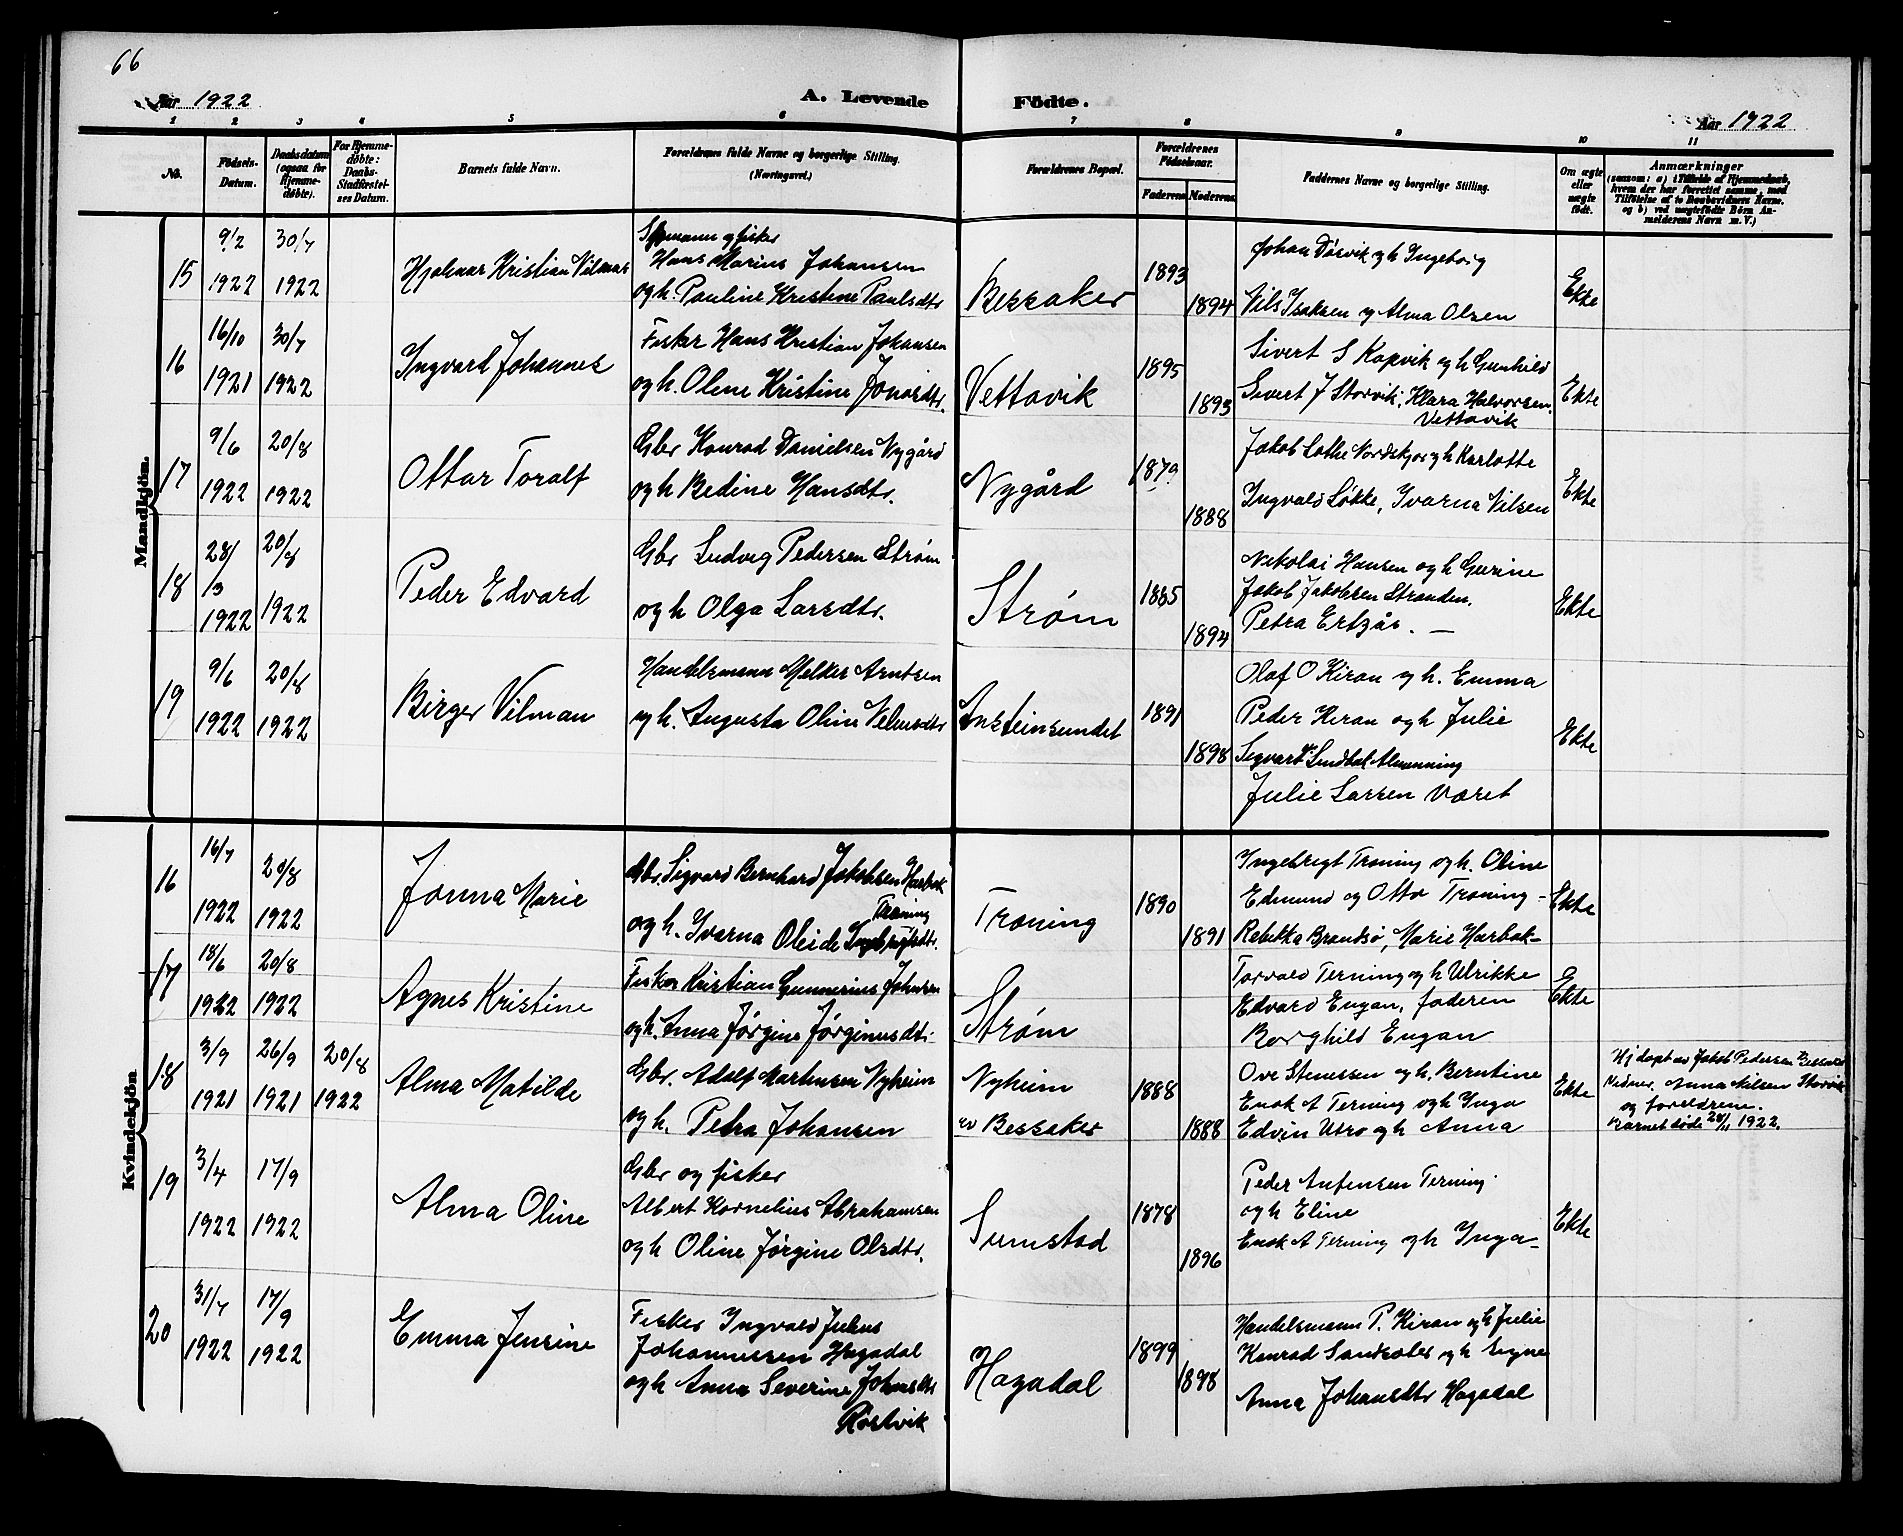 66
Aar 1922
A. Levende
Födte.
Aar 1922
1 2 3 4 5 6 7 8 9 10 11
No.
Födsels-Datum.
Daabsdatum (ogsaa for Hjemme-döbte).
For Hjemme-döbte: Daabs-Stadfæstel-ses Datum.
Barnets fulde Navn.
Forældrenes fulde Navne og borgerlige Stilling. (Næringsvei.)
Forældrenes Bopæl.
Forældrenes Födselsaar.
Faderens Moderens
Faddernes Navne og borgerlige Stilling.
Om ægte eller uægte födt.
Anmærkninger
(saasom: a) i Tilfælde af Hjemmedaab, hvem der har forrettet samme, med Tilföielse af to Daabsvidners Navne. og b) ved uægtefödte Börn An-melderens Navn m. V.)
Mandkjön.
15
9/2 1922
30/7 1922
Hjalmar Kristian Vilmar
Hans Marius Johansen
og h. Pauline Kristine Paulsdtr
Bessaker
1893
1894
Johan Dørvik og h Ingeborg
Nils Isaksen og Alma Olsen
Ekte
16
16/10 1921
30/7 1922
Ingvard Johannes
Fisker Hans Kristian Johansen
og h. Olene Kristine Jonasdtr.
Vettavik
1895
1895
Sivert S Kopvik og h Gunhild
Sivert J Storvik, Klara Halvorsen,
Vettavik
Ekte
17
9/6 1922
20/8 1922
Ottar Toralf
Gbr Konrad Danielsen Nygård
og h Bedine Hansdtr.
Nygård
1879
1888
Jakob Lothe Nordskjør og h Karlotte
Ingvald Løkke, Ivarna Nilsen
Ekte
18
28/3 1922
20/8 1922
Peder Edvard
Gbr Ludvig Pedersen Strøm
og h Olga Larsdtr.
Strøm
1885
1894
Nikolai Hansen og h Gurine
Jakob Jakobsen Stranden.
Petra Ertzås. —
Ekte
19
9/6 1922
20/8 1922
Birger Vilman
Handelsmann Melker Arntsen
og h. Augusta Oline
Ansteinsundet
1891
1898
Olaf O Kiran og h. Emma
Peder Kiran og h Julie
Julie Larsen Været
Ekte
Kvindekjön
16
16/7 1922
20/8 1922
Jonna Marie
Gbr. Sigvard Bernhard Jakobsen Harbak
Traning
og h. Ivarna Oleide Ingebrigtsdtr.
Traning
1890
1891
Ingebrigt Traning og h. Oline
Edmund og Otto Traning -
Rebekka Brandsø, Marie Harbak-
Ekte
17
18/6 1922
20/8 1922
Agnes Kristine
Fisker Kristian Gunnerius Johnsen
og h. Anna Jørgine Jørginusdtr.
Strøm
Torvald Terning og h Ulrikke
Edvard Engan, faderen
Borghild Engan
Ekte
18
3/9 1921
26/9 1921
20/8 1922
Alma Matilde
Gbr. Adolf Martinsen Nyheim
og h. Petra Johansen
Nyheim
av Bessaker
1888
1888
Ove Stenessen og h. Berntine
Enok A Terning og h Inga
Edvin Utro og h Anna
Ekte
Hj døpt av Jakob Pedersen Bessaker
Vidner. Anna Nilsen Storvik
og foreldrene.
Barnet døde 20/11 1922.
19
3/4 1922
17/9 1922
Alma Oline
Gbr og fisker
Albert Kornelius Abrahamsen
og h Oline Jørgine Olsdtr.
Sumstad
1878
1896
Peder Antensen Terning
og h Eline
Enok A Terning og h Inga -
Ekte
20
31/7 1922
17/9 1922
Emma Jensine
Fisker Ingvald Julius
Johannessen Hagadal
og h Anna Severine Johnsdtr
Røstvik
Hagadal
1899
1898
Handelsmann P. Kiran og h Julie
Konrad Sandsaker og h Signe
Anna Johansdtr Hagadal